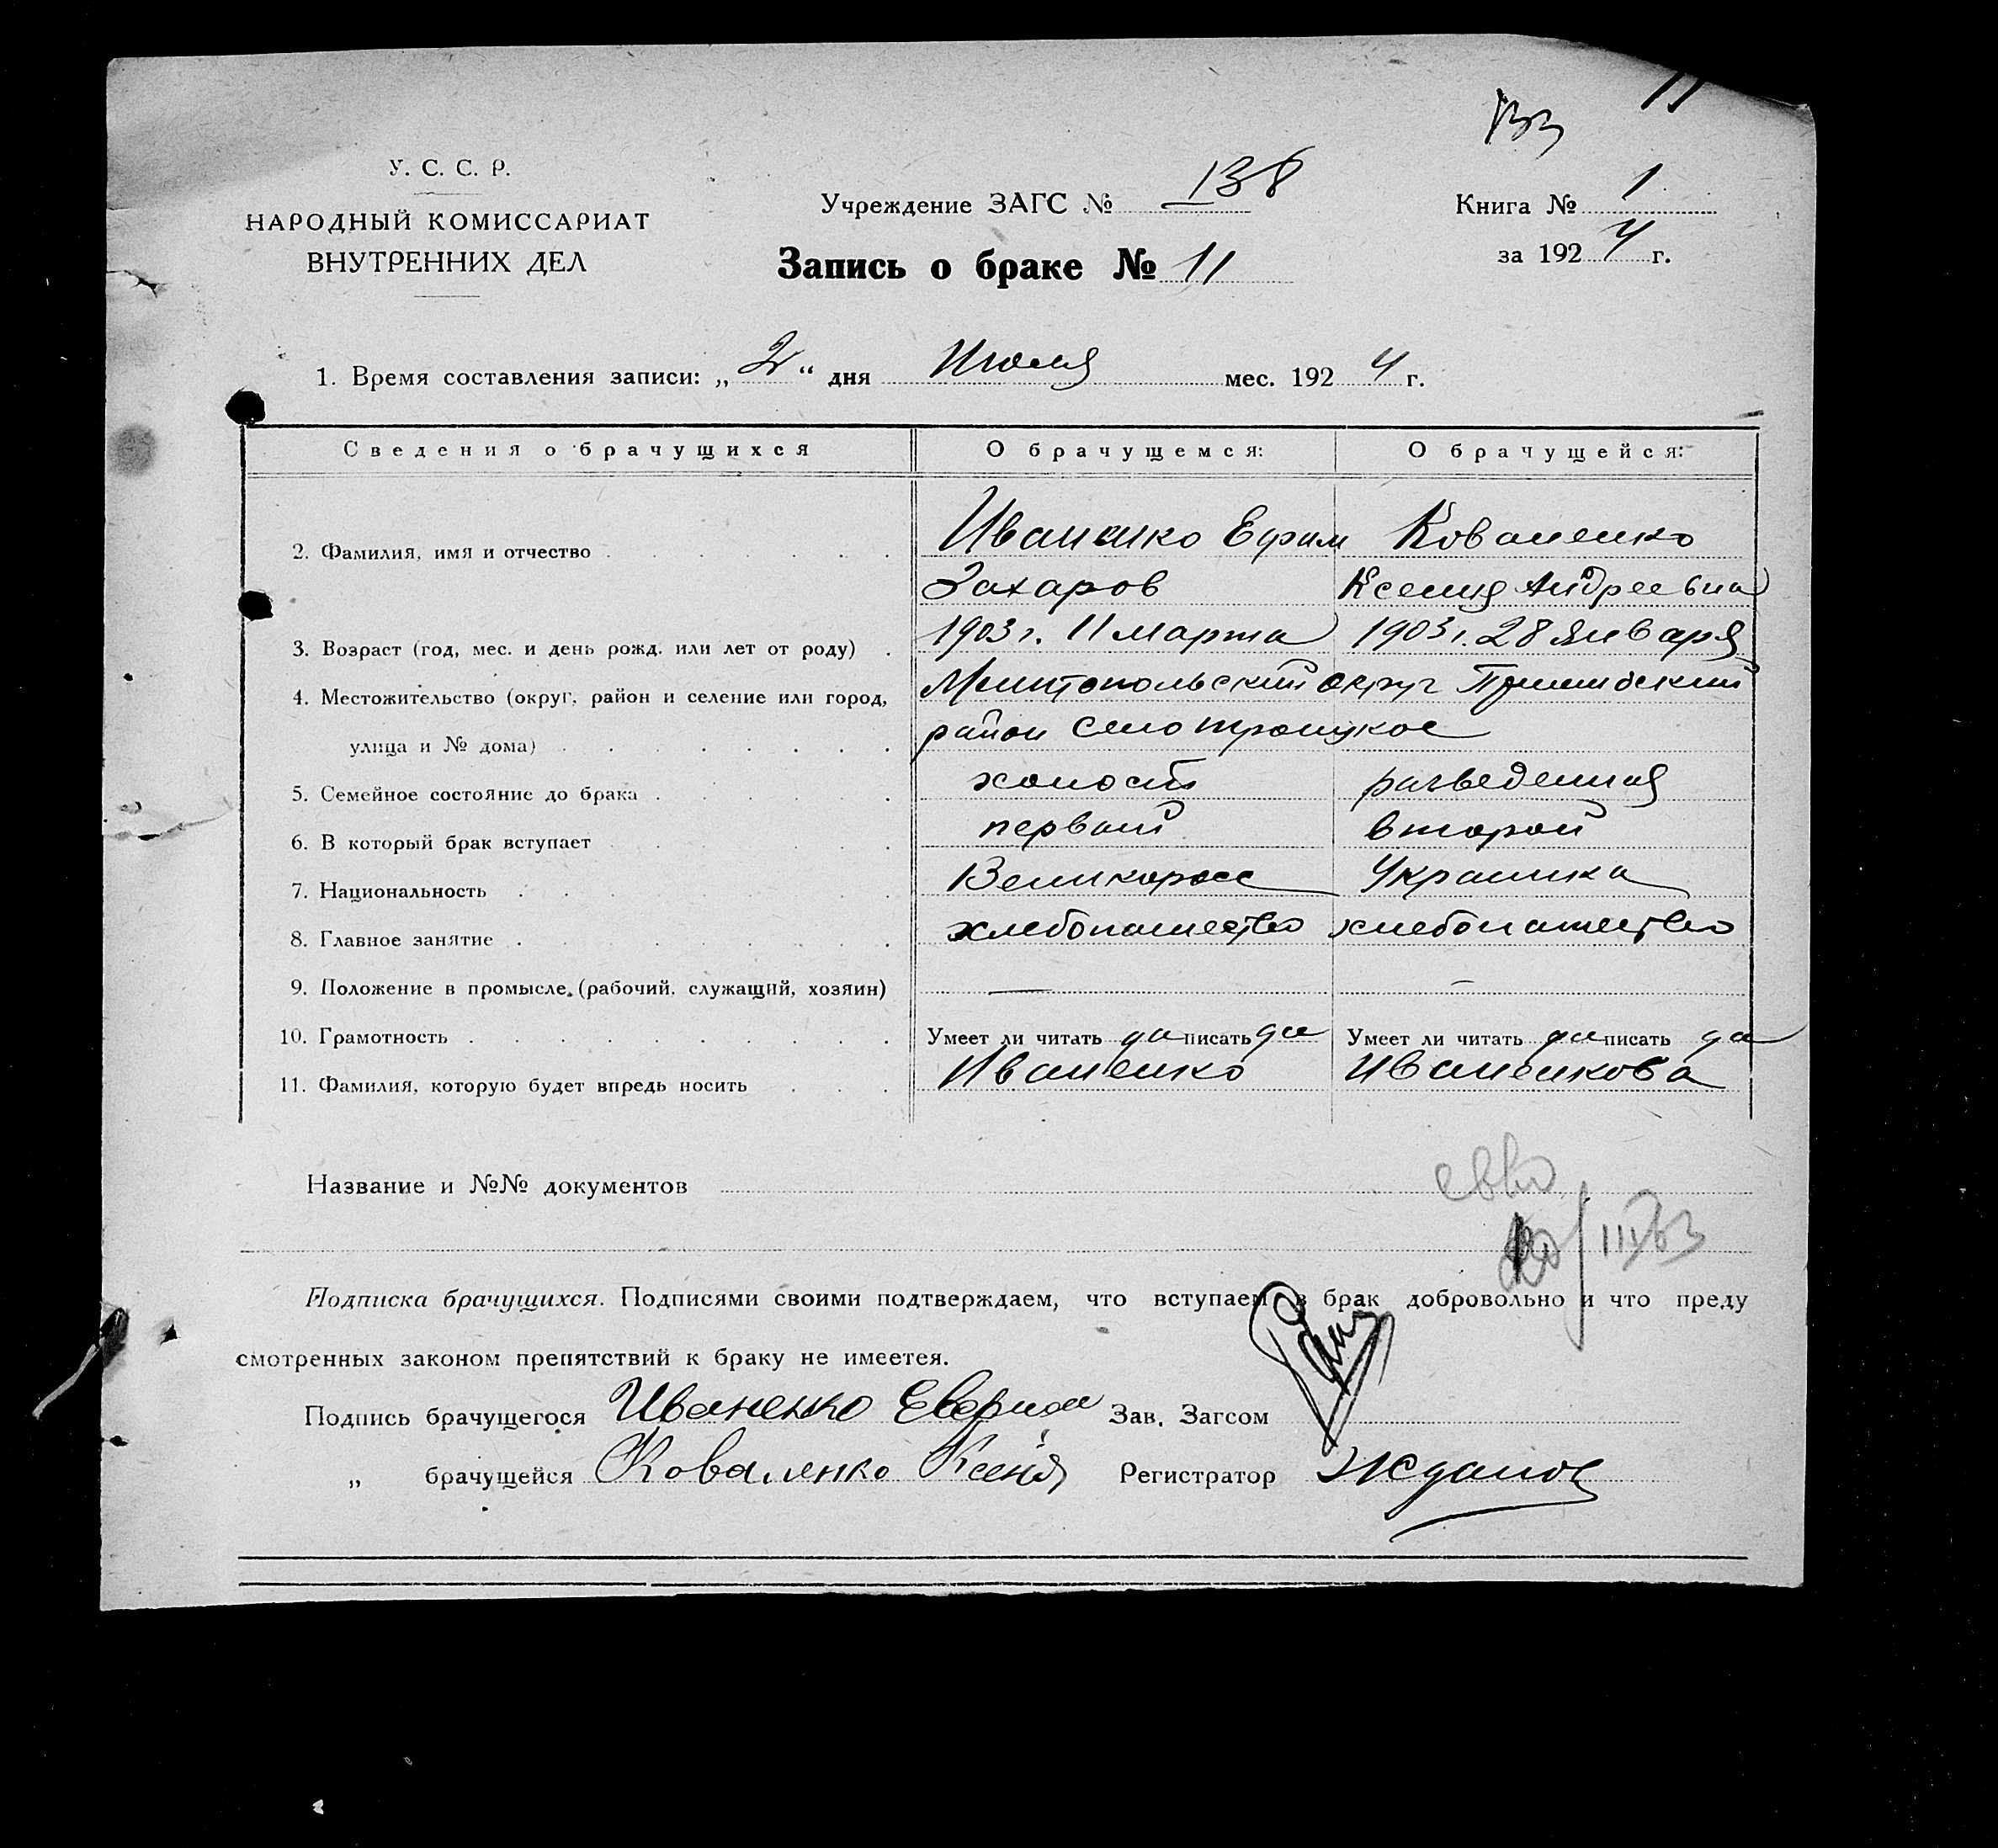 11
133
У. С. С. Р.
НАРОДНЫЙ КОМИССАРИАТ
ВНУТРЕННИХ ДЕЛ
Учреждение ЗАГС № 138
Книга № 1
за 1924 г.
Запись о браке № 11
1. Время составления записи: „2“ дня Июля мес. 1924 г.
Сведения о брачущихся О брачущемся: О брачущейся:
2. Фамилия, имя и отчество Иваненко Ефим Коваленко
Захаров Ксения Андреевна
3. Возраст (год, мес. и день рожд. или лет от роду) 1903 г. 11 марта 1903 г. 28 января
4. Местожительство (округ, район и селение или город, Мелитопольский округ Пришибский
улица и № дома) район село троицкое
5. Семейное состояние до брака холост разведенная
6. В который брак вступает первый второй
7. Национальность Великоросс Украинка
8. Главное занятие хлебопашество хлебопашество
9. Положение в промысле (рабочий, служащий, хозяин) — —
10. Грамотность Умеет ли читать да писать да Умеет ли читать да писать да
11. Фамилия, которую будет впредь носить Иваненко Иваненкова
Название и №№ документов
Подписка брачущихся. Подписями своими подтверждаем, что вступаем в брак добровольно и что преду
смотренных законом препятствий к браку не имеется.
Подпись брачущегося Иваненко Зав. Загсом
„ брачущейся Коваленко Ксения Регистратор Жданов